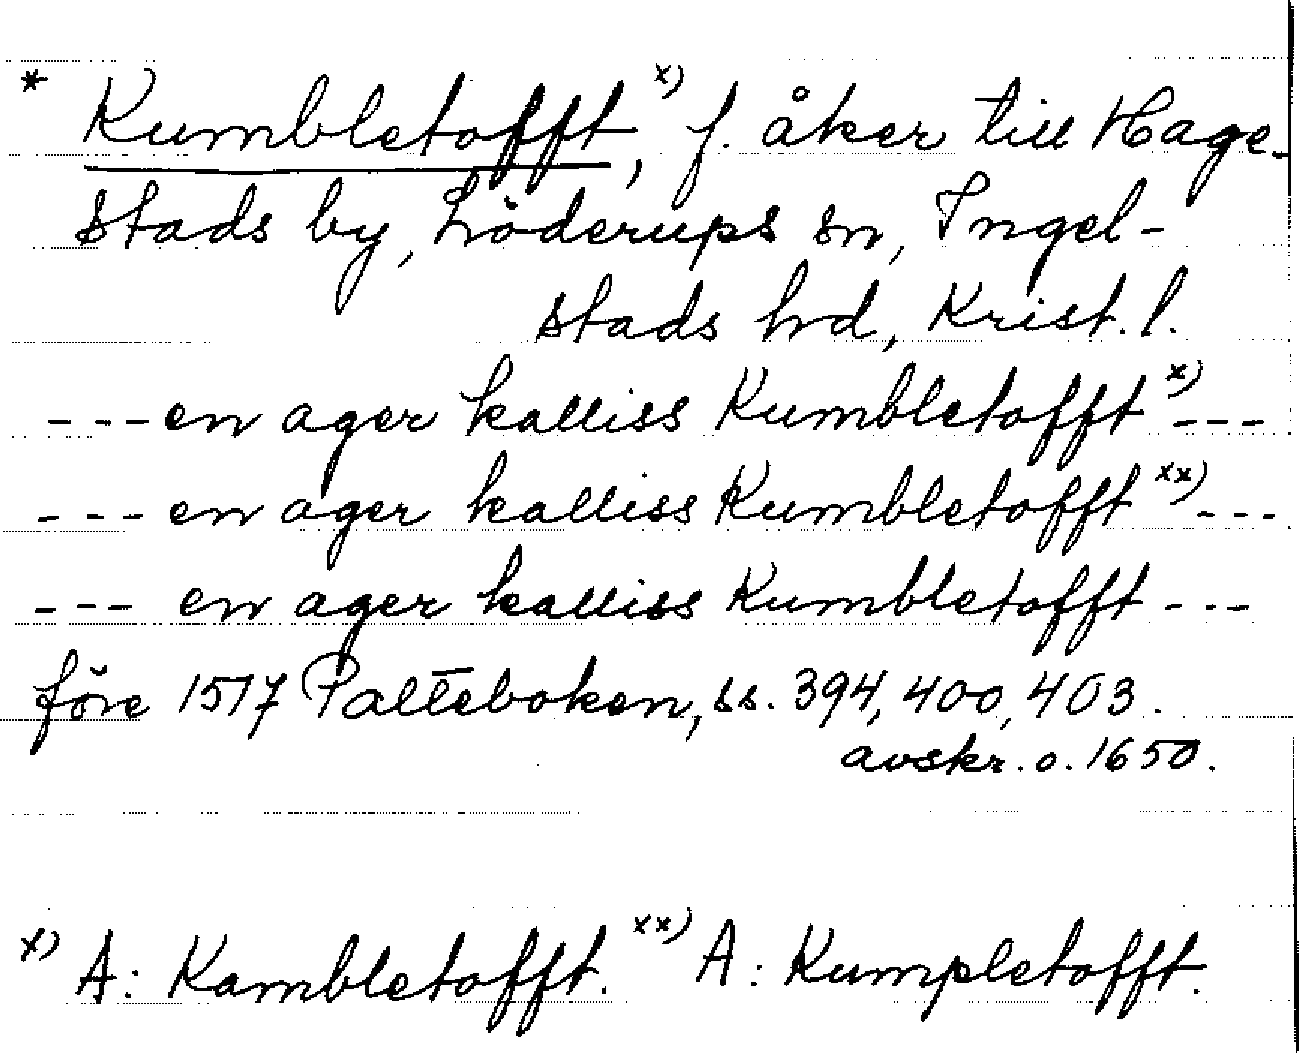 * Kumbletofft, x) f. åker till Hage-
stads by, Löderups sn, Ingel-
stads hd, Krist. l.
---en ager kalliss Kumbletofft x)---
---en ager kalliss Kumbletofft xx)---
--- en ager kalliss Kumbletofft ---
före 1517 Palteboken, ss. 394, 400, 403.
avskr. o. 1650.
x) A: Kambletofft. xx) A: Kumpletofft.